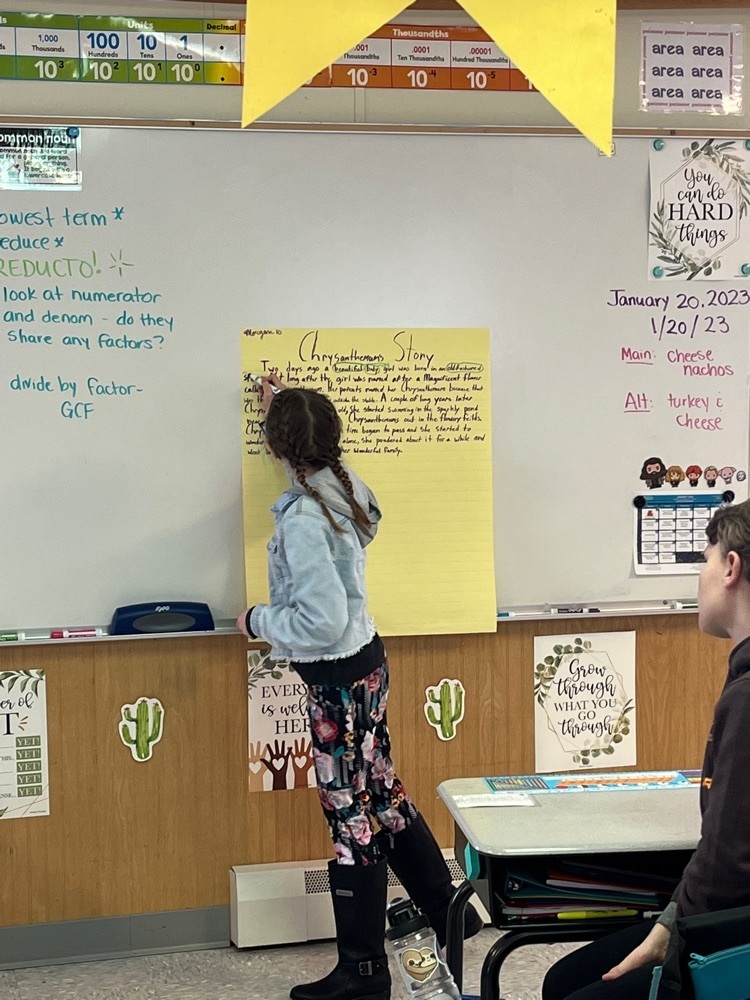 Units
Decimal
Thousandths
1,000
100
10
1
.001
.0001
.00001
Thousands
Hundreds
Tens
Ones
Thousandths
Ten Thousandths
Hundred Thousandths
10³
10²
10¹
10⁰
10⁻³
10⁻⁴
10⁻⁵
area area
area area
area area
ommon noun
You
can do
HARD
things
owest term*
educe*
REDUCTO!
look at numerator
and denom - do they
share any factors?
divide by factor-
GCF
January 20, 2023
1/20/23
Main: cheese
nachos
Alt: turkey &
cheese
Chrysanthemums Story
Two days ago a beautiful baby girl was born in an old fashioned
long after the girl was named after a Magnificent flower
Her parents named her Chrysanthemums because that
A couple of long years later
old, She started swimming in the sparkly pond
Chrysanthemums out in the flowery fields.
time began to pass and she started to
alone, she pondered about it for a while and
her wonderful family.
EXPO
EVERY
is wel
HER
Grow
through
WHAT YOU
GO
through
er of
T
YET!
YET!
YET!
YET!
YET!